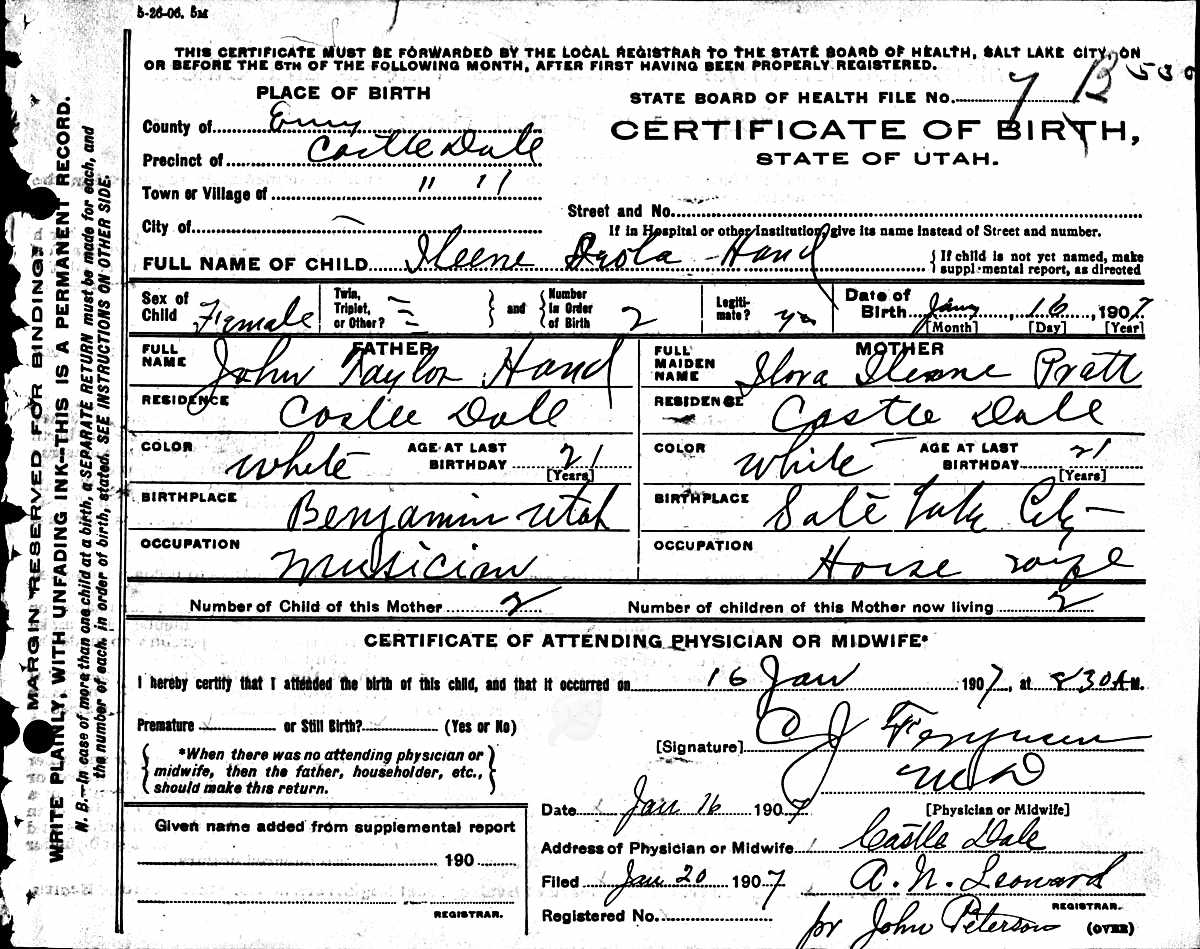 5-26-06. 5M
THIS CERTIFICATE MUST BE FORWARDED BY THE LOCAL REGISTRAR TO THE STATE BOARD OF HEALTH, SALT LAKE CITY, ON
OR BEFORE THE 5TH OF THE FOLLOWING MONTH, AFTER FIRST HAVING BEEN PROPERLY REGISTERED.
PLACE OF BIRTH
STATE BOARD OF HEALTH FILE No. 7 B 539
County of Emry
CERTIFICATE OF BIRTH,
Precinct of Castle Dale
STATE OF UTAH.
Town or Village of " "
Street and No.
City of —
If in Hospital or other Institution, give its name instead of Street and number.
FULL NAME OF CHILD Ileene Hand
{ If child is not yet named, make
supplemental report, as directed
Sex of Child Female
Twin, Triplet, or Other? =
and
Number in Order of Birth 2
Legitimate? yes
Date of Birth Jany 16, 1907
[Month] [Day] [Year]
FATHER
FULL NAME John Taylor Hand
RESIDENCE Castle Dale
COLOR white AGE AT LAST BIRTHDAY 21
[Years]
BIRTHPLACE Benjamin Utah
OCCUPATION Musician
MOTHER
FULL MAIDEN NAME Ileene Pratt
RESIDENCE Castle Dale
COLOR white AGE AT LAST BIRTHDAY 21
[Years]
BIRTHPLACE Salt Lake City
OCCUPATION House wife
Number of Child of this Mother 2 Number of children of this Mother now living 2
CERTIFICATE OF ATTENDING PHYSICIAN OR MIDWIFE*
I hereby certify that I attended the birth of this child, and that it occurred on 16 Jan 1907, at 830 A.M.
Premature or Still Birth? (Yes or No)
*When there was no attending physician or
midwife, then the father, householder, etc.,
should make this return.
[Signature] C J Ferguson
M D
[Physician or Midwife]
Date Jan 16 1907
Address of Physician or Midwife Castle Dale
Filed Jan 20 1907 A. N. Leonard
REGISTRAR.
Registered No. pr John Peterson
(OVER)
Given name added from supplemental report
190
REGISTRAR.
MARGIN RESERVED FOR BINDING.
WRITE PLAINLY, WITH UNFADING INK—THIS IS A PERMANENT RECORD.
N. B.—In case of more than one child at a birth, a SEPARATE RETURN must be made for each, and
the number of each, in order of birth, stated. SEE INSTRUCTIONS ON OTHER SIDE.